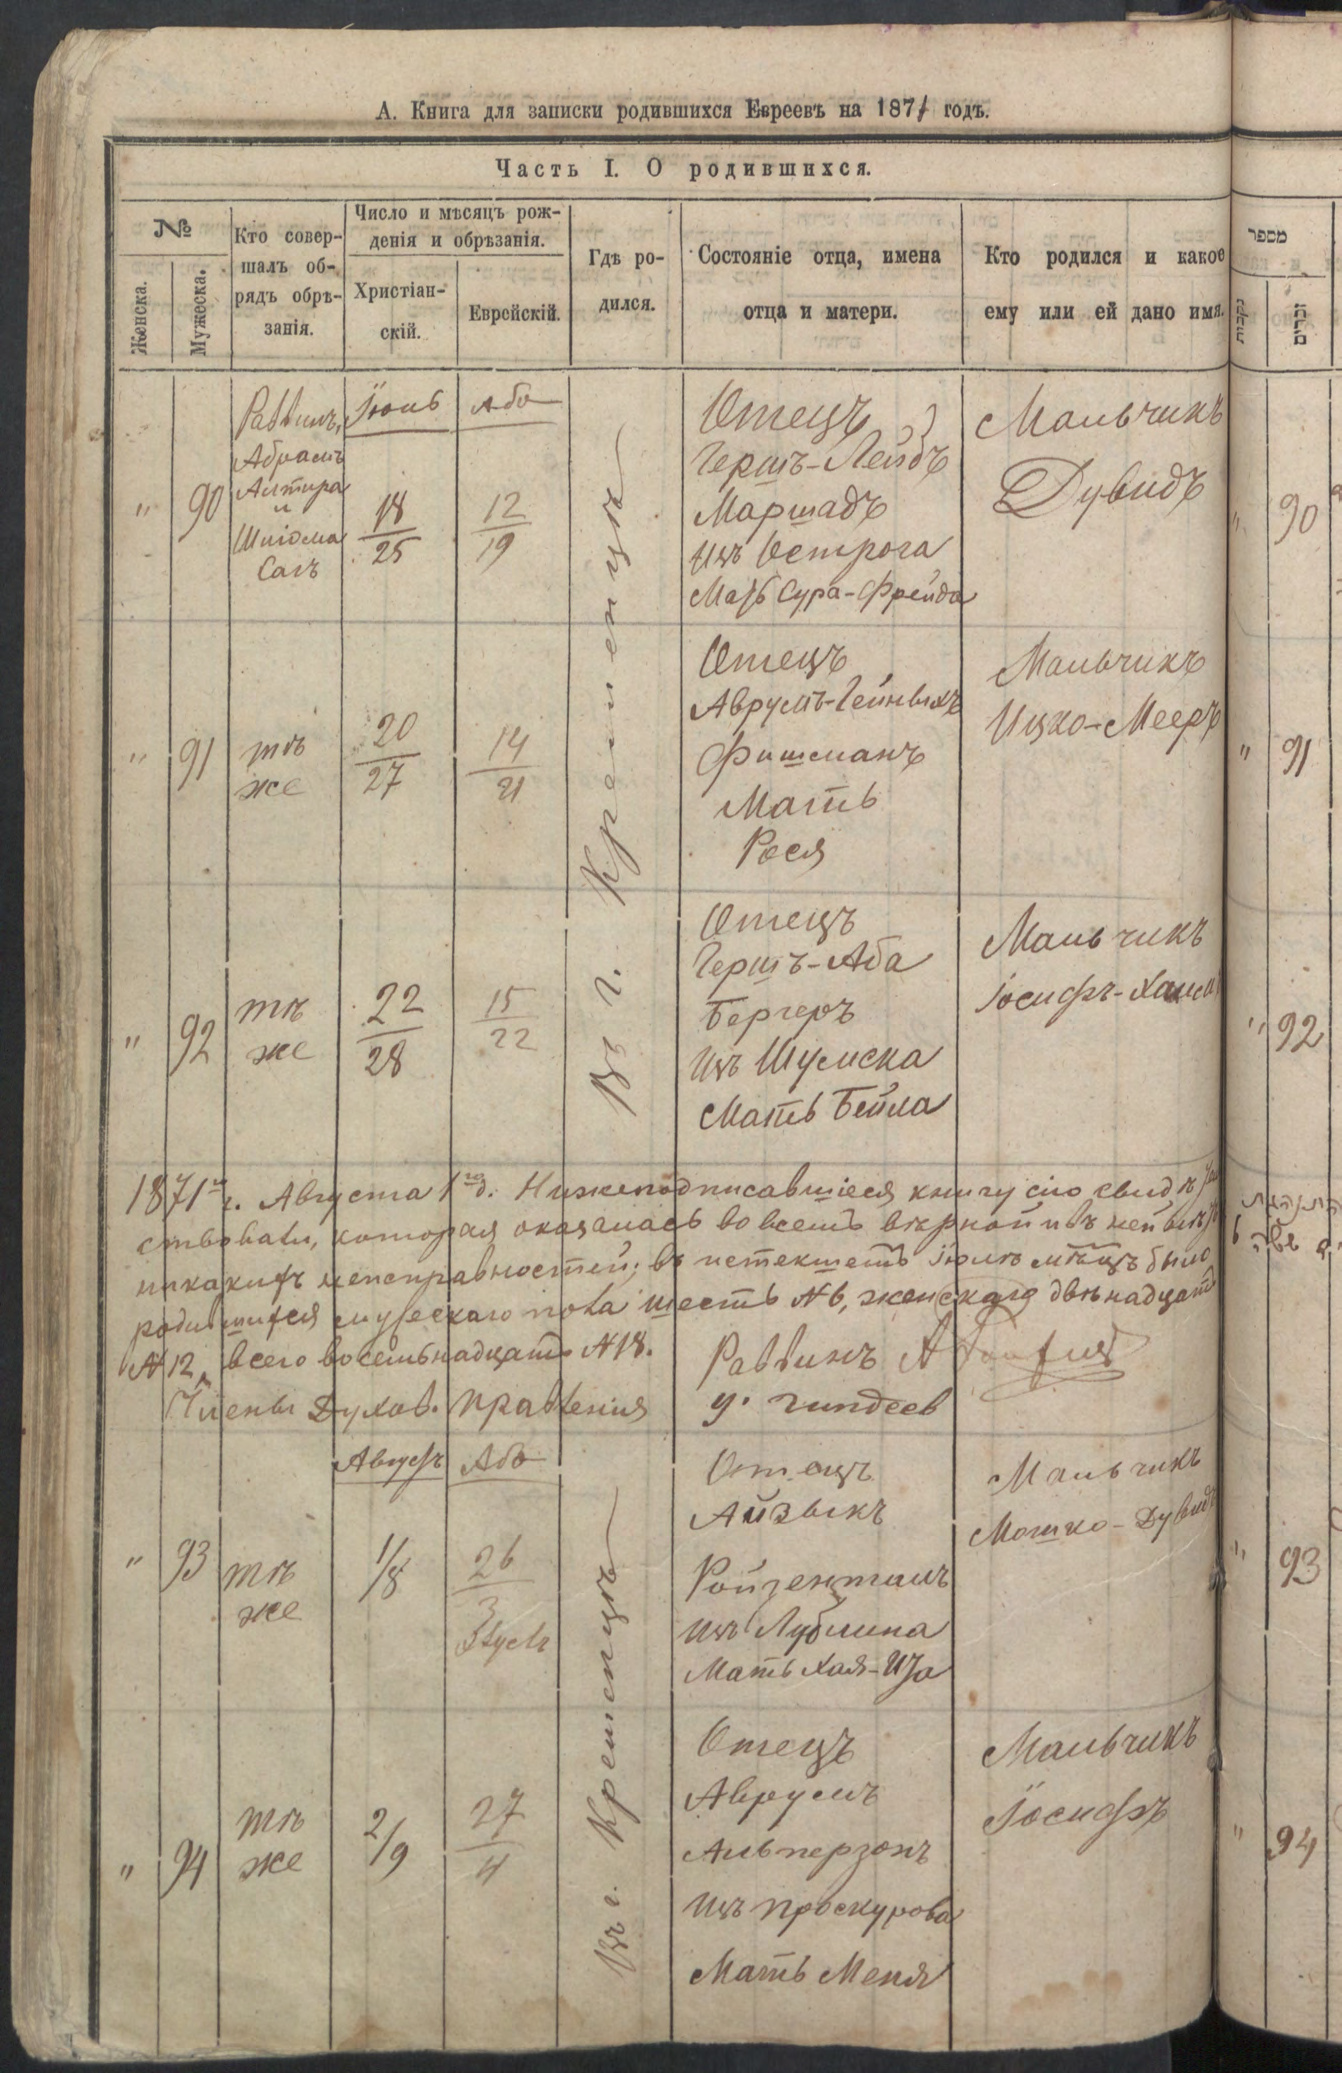 А. Книга для записки родившихся Евреевъ на 1871 годъ.
Часть I. О родившихся.
№
Женска.
Мужеска.
Кто совер-
шалъ об-
рядъ обрѣ-
занія.
Число и мѣсяцъ рож-
денія и обрѣзанія.
Христіан-
скій.
Еврейскій.
Гдѣ ро-
дился.
Состояніе отца, имена
отца и матери.
Кто родился и какое
ему или ей дано имя.
מספר
נקבות
זכרים
" 90
Раввинъ
Абрамъ
Алтира
и
Шліома
Сагъ
Іюль
18
25
Абъ
12
19
Въ г. Кременцѣ
Отецъ
Гершъ-Лейбъ
Маршадъ
изъ Острога
Мать Сура-Фрейда
Мальчикъ
Дувидъ
" 90
" 91
тѣ
же
20
27
14
21
Отецъ
Аврумъ-Гейныхъ
Фишманъ
Мать
Рося
Мальчикъ
Ицко-Мееръ
" 91
" 92
тѣ
же
22
28
15
22
Отецъ
Гершъ-Аба
Бергеръ
изъ Шумска
Мать Бейла
Мальчикъ
Іосифъ-
" 92
1871 г. Августа 1го д. Нижеподписавшіеся книгу сію свидѣ
ствовали, которая оказалась во всемъ вѣрной и въ ней
никакихъ неисправностей; въ истекшемъ Іюлѣ мѣсяцѣ было
родившихся мужескаго пола шесть №6, женскаго двѣнадцать
№12, всего восемьнадцать №18.
Раввинъ
Члены Духов. Правленія
У. Гиндеев
" 93
тѣ
же
Август
1/8
Абъ
26
3
Въ г. Кременцѣ
Отецъ
Айзыкъ
Ройзенталъ
изъ Лублина
Мать Хая-Иза
Мальчикъ
Мошко-Дувидъ
" 93
" 94
тѣ
же
2/9
27
4
Отецъ
Аврумъ
Альперзонъ
изъ Проскурова
Мать Меня
Мальчикъ
Іосифъ
" 94